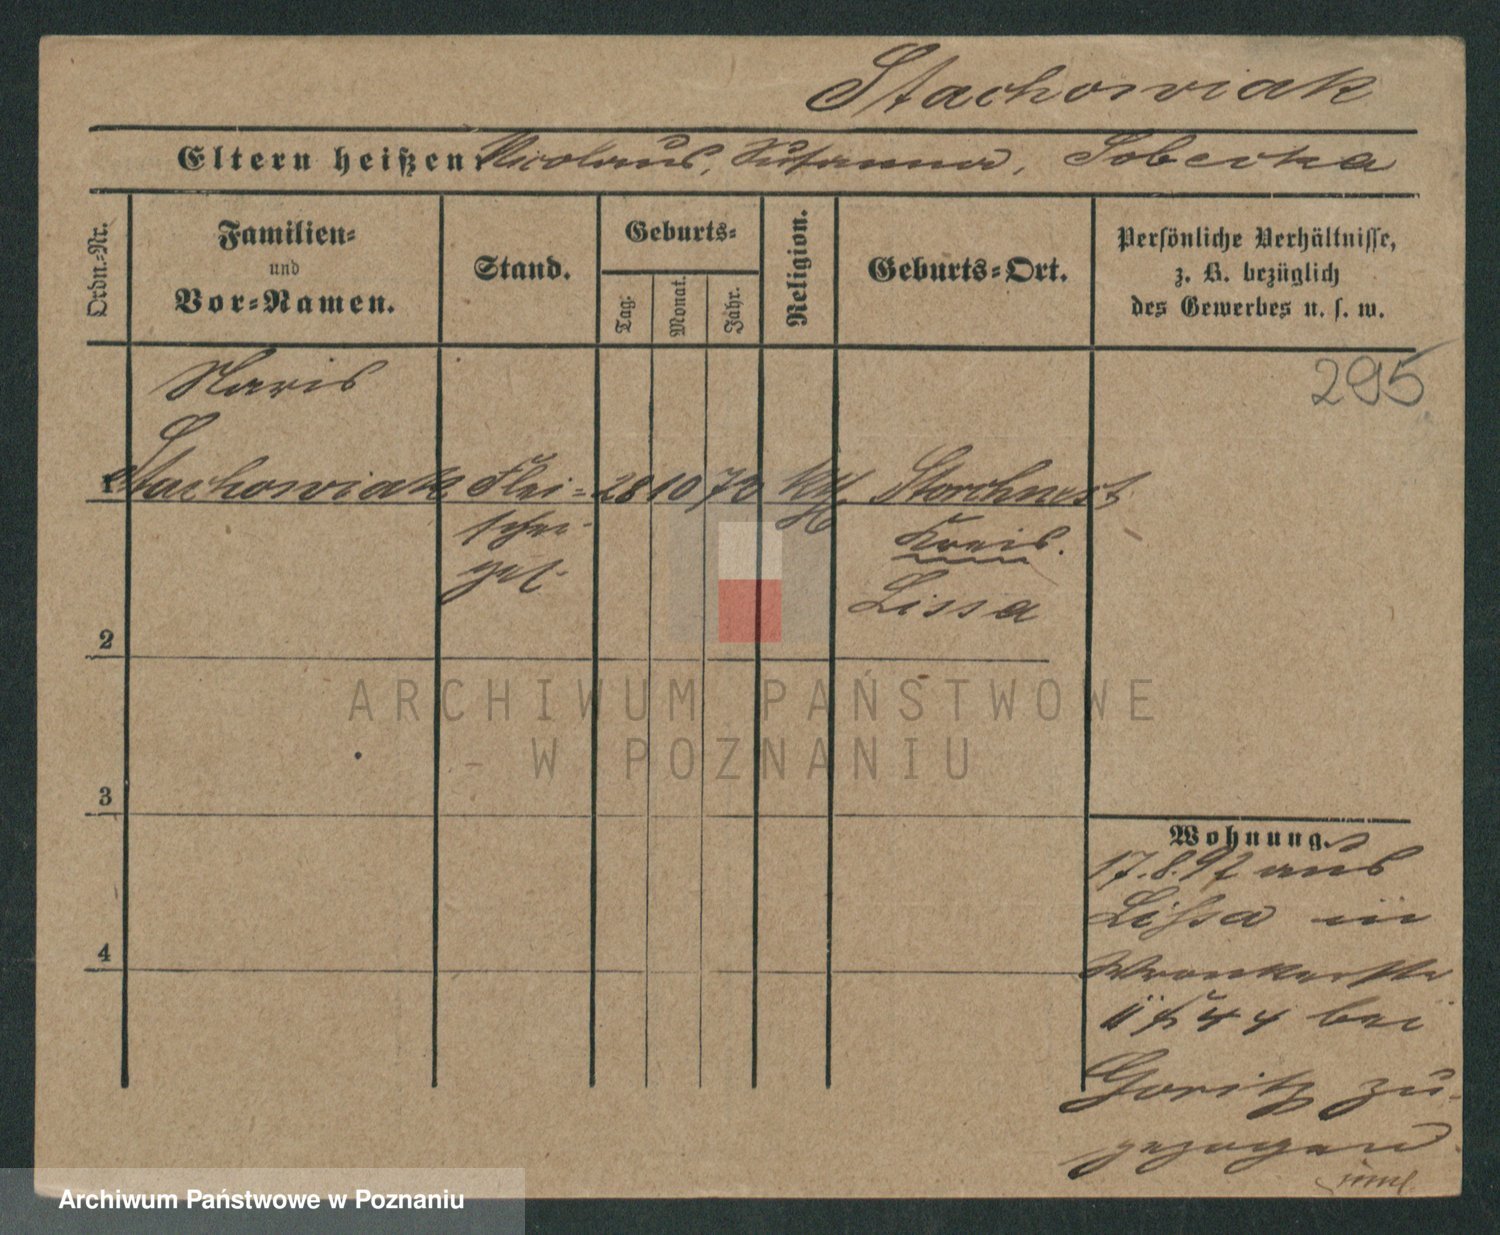 Stachowiak
Eltern heißen: Nicolaus, Susanna, Sobecka
Ordn.-Nr.
Familien-
und
Vor-Namen.
Stand.
Geburts-
Tag.
Monat.
Jahr.
Religion.
Geburts-Ort.
Persönliche Verhältnisse,
z. B. bezüglich
des Gewerbes u. s. w.
295
1 Stachowiak Flei- 28 10 73 Kth. Storchnest
Kreis
Lissa
2
ARCHIWUM PAŃSTWOWE
W POZNANIU
3
4
Wohnung.
17.8.92 aus
Lissa in
Wronkerstr
44 bei
Goritz zu-
gezogen
Archiwum Państwowe w Poznaniu